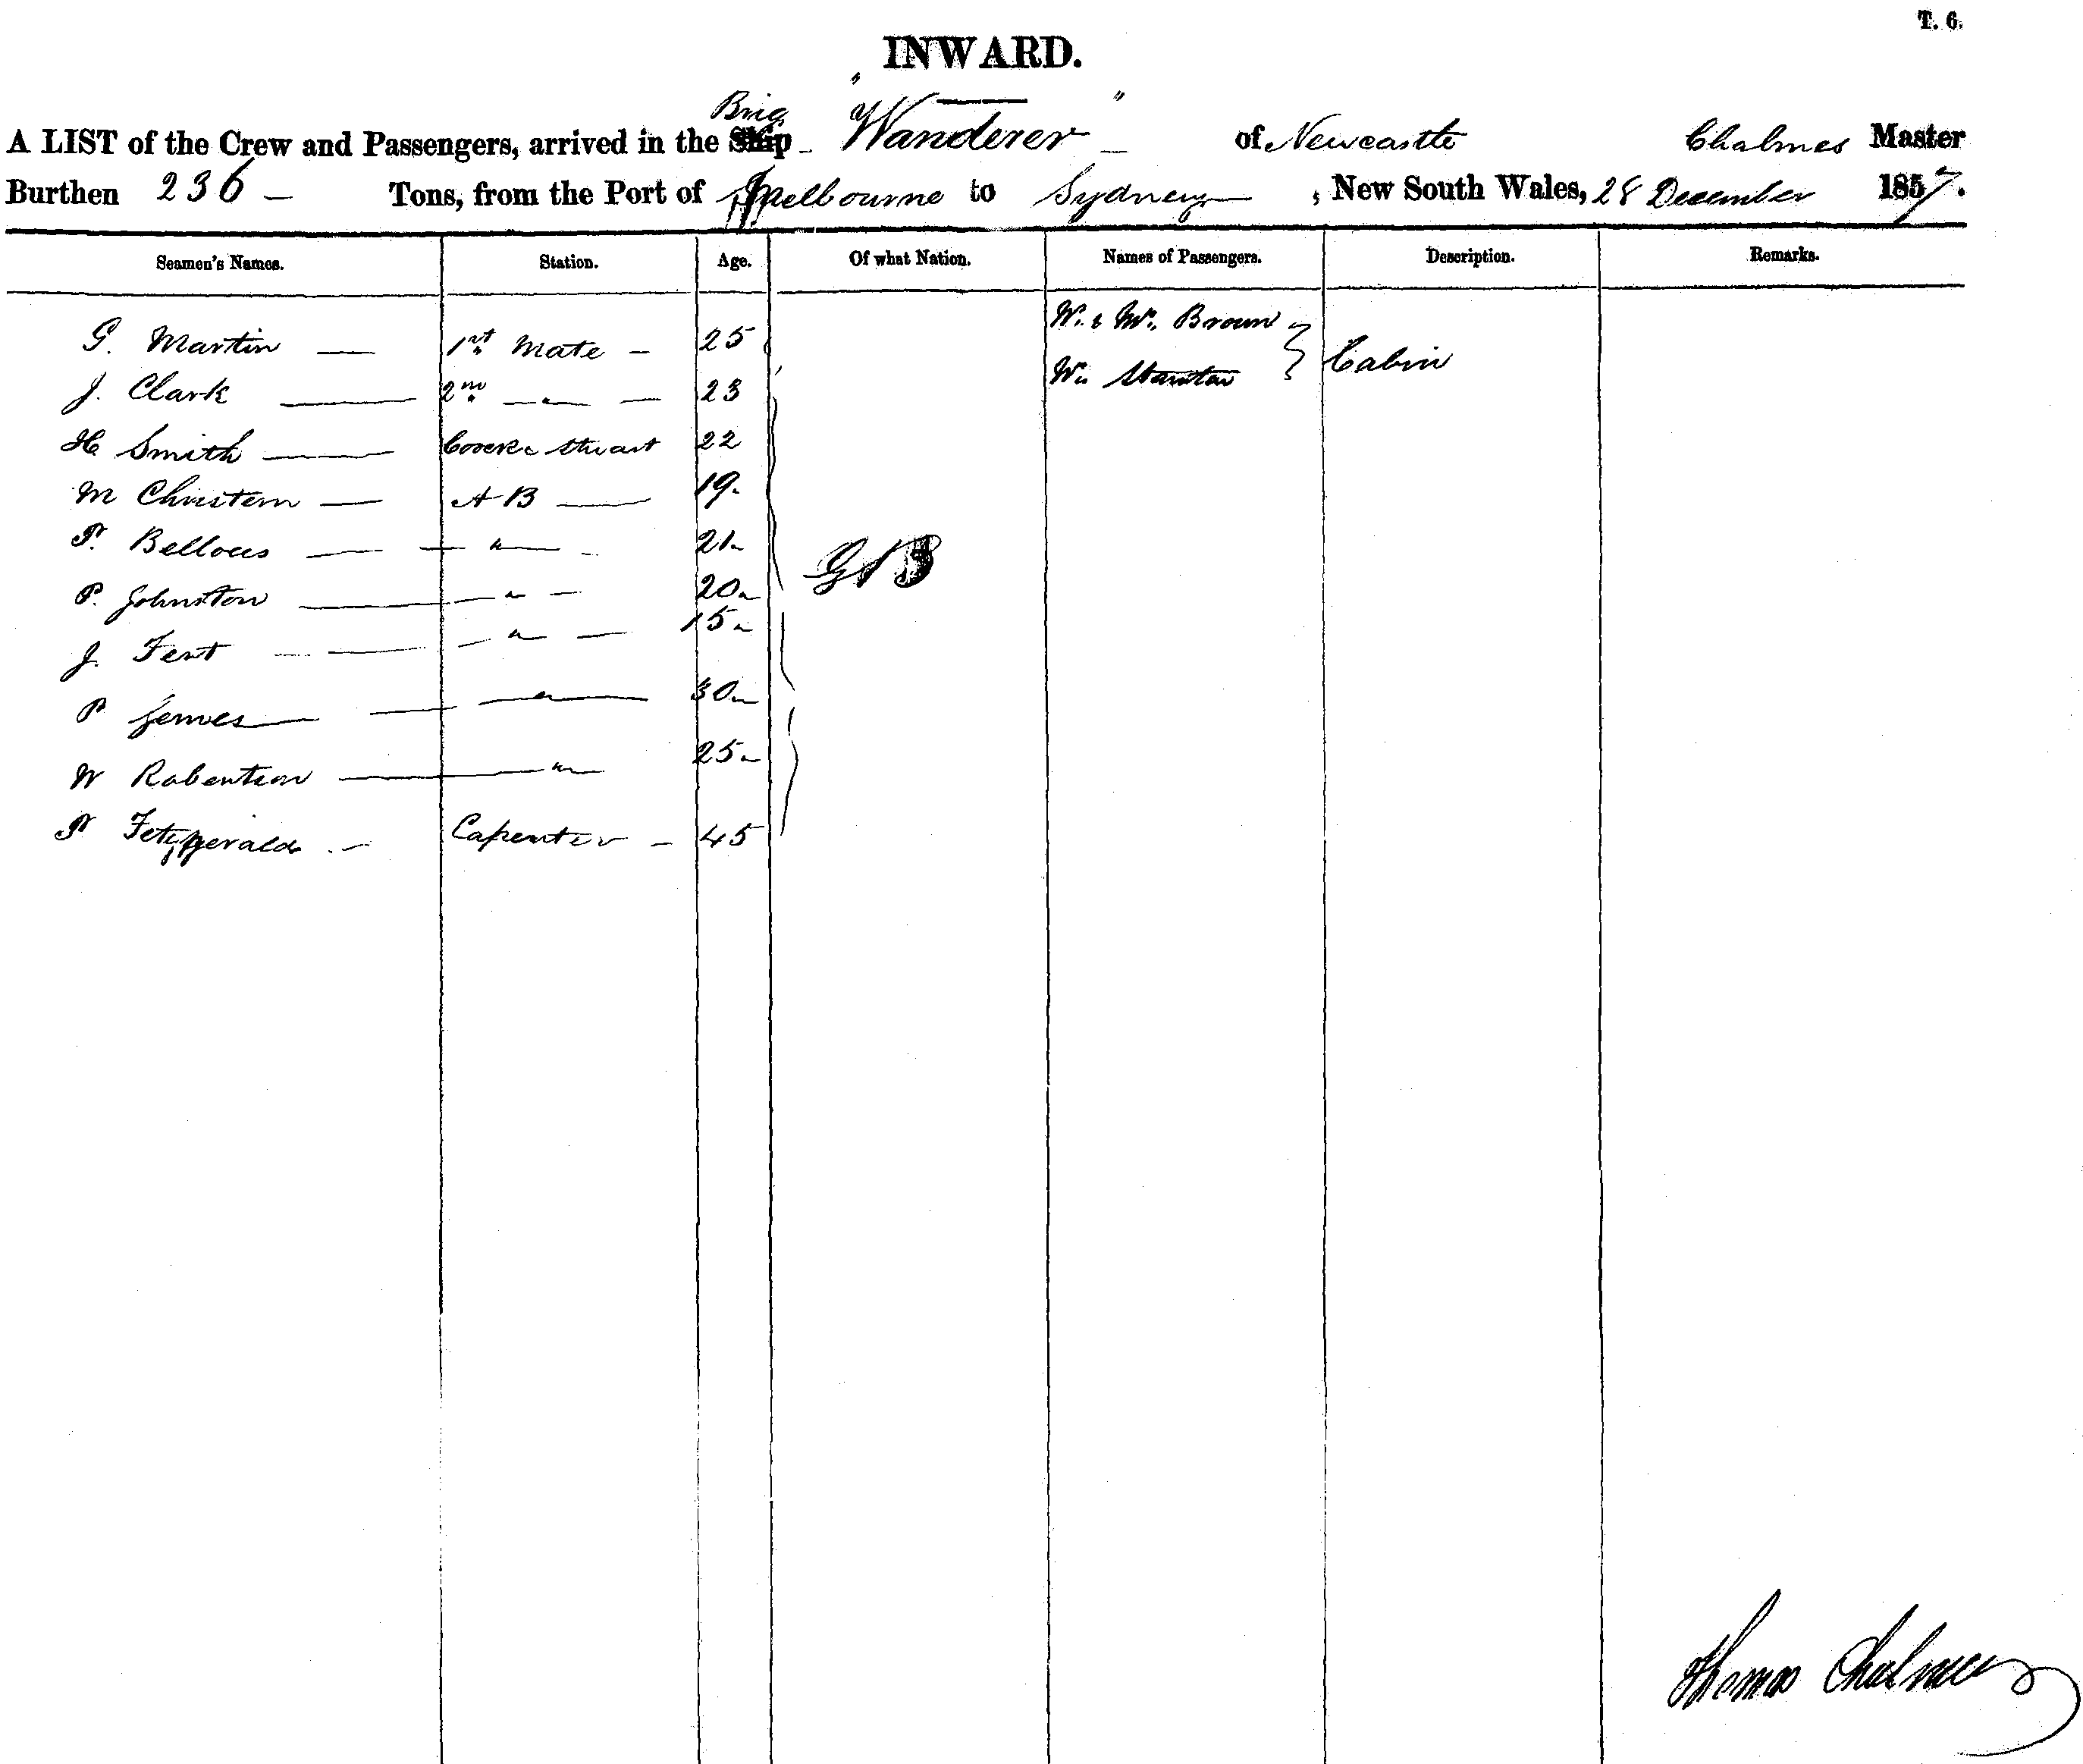 T. 6.
INWARD.
Brig
A LIST of the Crew and Passengers, arrived in the Ship "Wanderer" of Newcastle Chalmes Master
Burthen 236 – Tons, from the Port of Melbourne to Sydney, New South Wales, 28 December 1857.
Seamen's Names. Station. Age. Of what Nation. Names of Passengers. Description. Remarks.
G. Martin — 1st Mate — 25 W. & Mrs. Brown
J. Clark — 2nd — " — 23 Cabin
H Smith — 22
M Christern — A B — 19
P. Bellows — " — 21 G B
P. Johnston — " — 20
J. Fent — " — 15
P James — " — 30
W Robentson — " — 25
P Fetzgerald — Capenter — 45
Thomas Chalmers